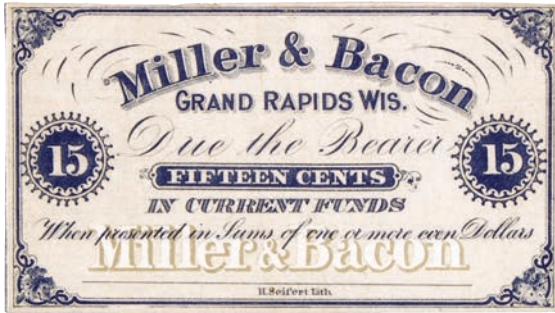 Miller & Bacon
GRAND RAPIDS WIS.
Due the Bearer
15 FIFTEEN CENTS 15
IN CURRENT FUNDS
When presented in Sums of one or more even Dollars
Miller & Bacon
H. Seifert Lith.